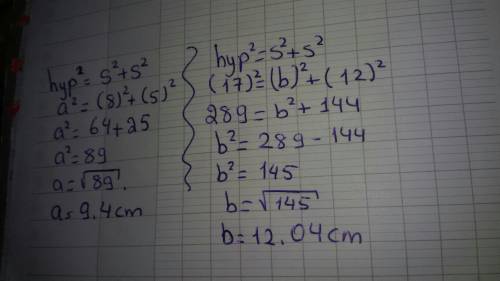 hyp² = S² + S²
a² = (8)² + (5)²
a² = 64 + 25
a² = 89
a = √89.
a = 9.4 cm
hyp² = S² + S²
(17)² = (b)² + (12)²
289 = b² + 144
b² = 289 - 144
b² = 145
b = √145
b = 12.04 cm